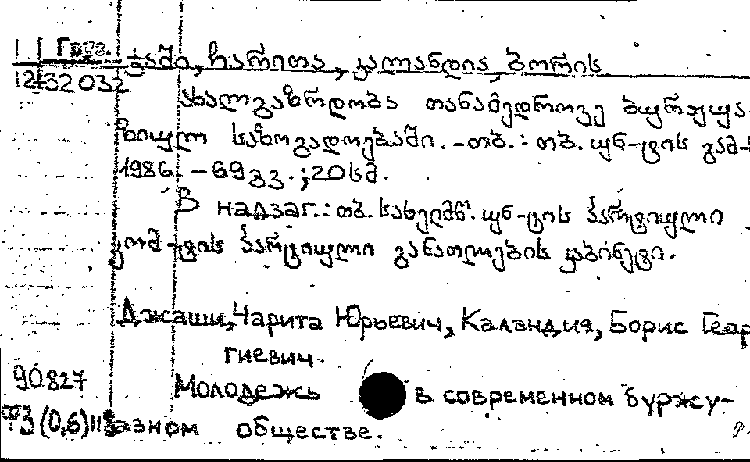 Груз.
12-32032
ჯაში, ჩარიტა, კალანდია, ბორის
ახალგაზრდობა თანამედროვე ბურჟუა-
ზიულ საზოგადოებაში. - თბ.: თბ. უნ-ტის გამ-
1986. - 69 გვ.; 20 სმ.
В надзаг.: თბ. სახელმწ. უნ-ტის პარტიული
კომ-ტის პარტიული განათლების კაბინეტი.
Джаши, Чарита Юрьевич, Каландия, Борис Геор
гиевич.
90827 Молодежь в современном буржу-
ФЗ (0,6) азном обществе.